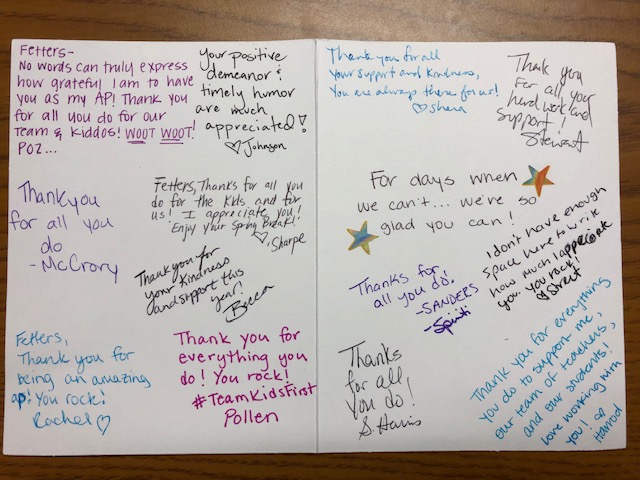 Fetters-
No words can truly express
how grateful I am to have
you as my AP! Thank you
for all you do for our
team & kiddos! WOOT WOOT!
POZ...
Your positive
demeanor &
timely humor
are much
appreciated!
♡Johnson
Thank you
for all you
do
-McCrory
Fetters, Thanks for all you
do for the kids and for
us! I appreciate you!
Enjoy your Spring Break!
♡, Sharpe
Thank you for
your kindness
and support this
year!
Becca
Fetters,
Thank you for
being an amazing
ap! You rock!
Rachel ♡
Thank you for
everything you
do! You rock!
#TeamKidsFirst
Pollen
Thank you for all
your support and kindness,
You are always there for us!
♡Shera
Thank you
For all your
hard work and
support!
Stewart
For days when
we can't... we're so
glad you can!
I don't have enough
space here to write
how much I appreciate
you. You rock!
Street
Thanks for
all you do!
-SANDERS
Thanks
for all
you do!
S. Harris
Thank you for everything
you do to support me,
our team of teachers,
and our students!
Love working with
you!
Harrod